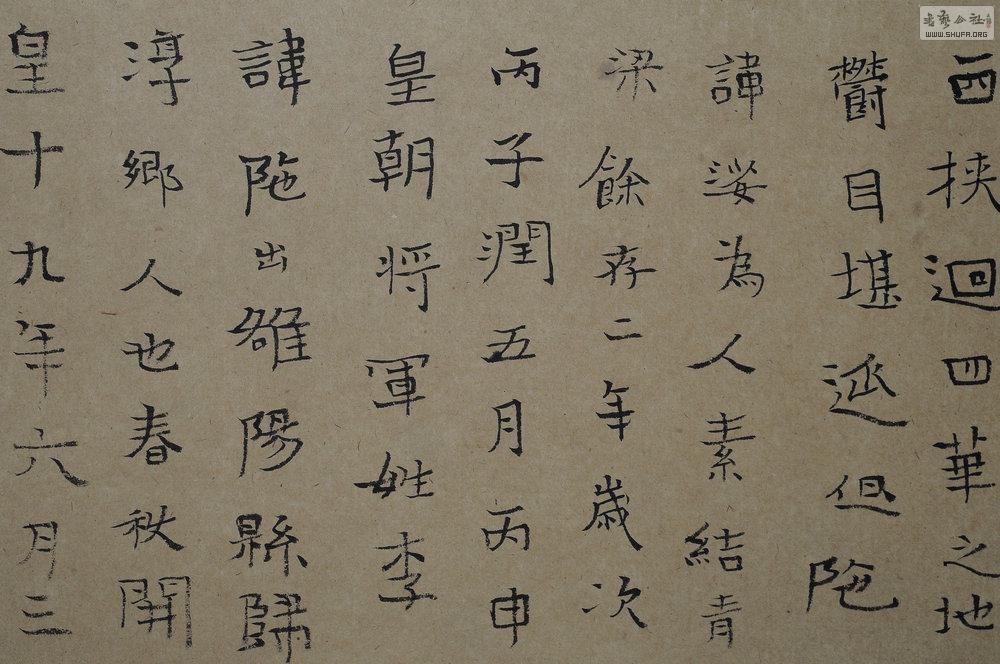 西挟迴四華之地
鬱目堪遞但陁
諱婑為人素結青
梁餘存二年歲次
丙子潤五月丙申
皇朝将軍姓李
諱陁出雒陽縣歸
淳鄉人也春秋開
皇十九年六月三
书艺公社
WWW.SHUFA.ORG